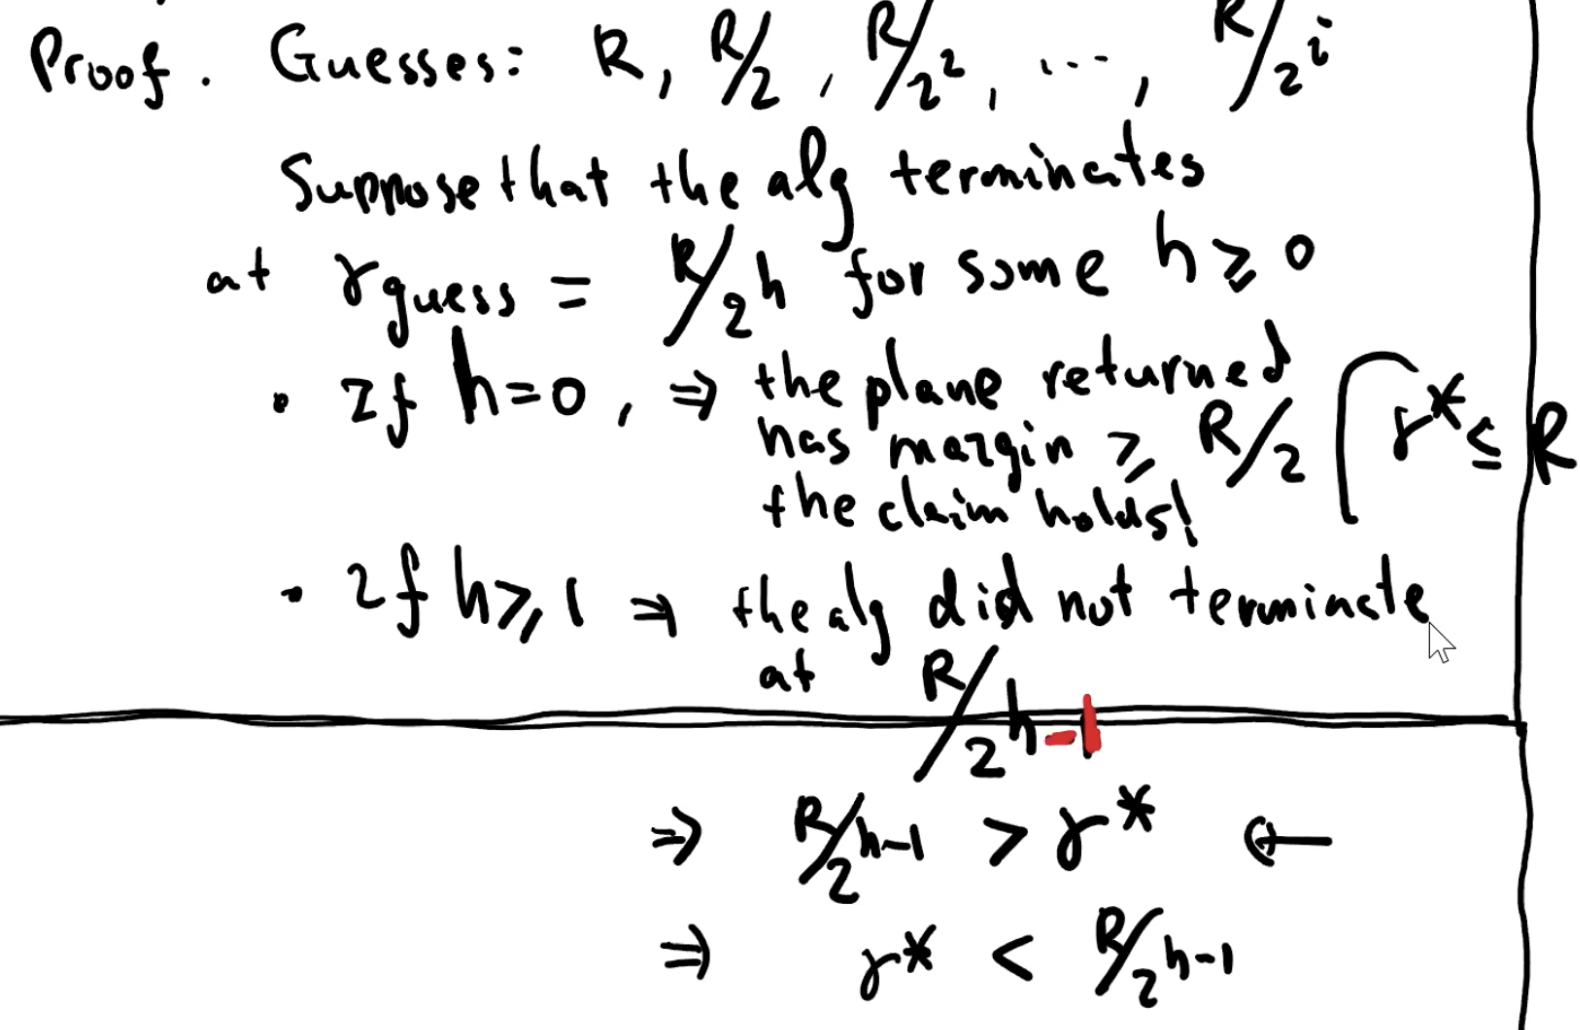 Proof. Guesses: R, R/2, R/2², ..., R/2ⁱ
Suppose that the alg terminates
at γguess = R/2ʰ for some h ≥ 0
• If h=0, ⇒ the plane returned
has margin ≥ R/2 γ* ≤ R
the claim holds!
• If h ≥ 1 ⇒ the alg did not terminate
at R/2ʰ⁻¹
⇒ R/2ʰ⁻¹ > γ* ←
⇒ γ* < R/2ʰ⁻¹